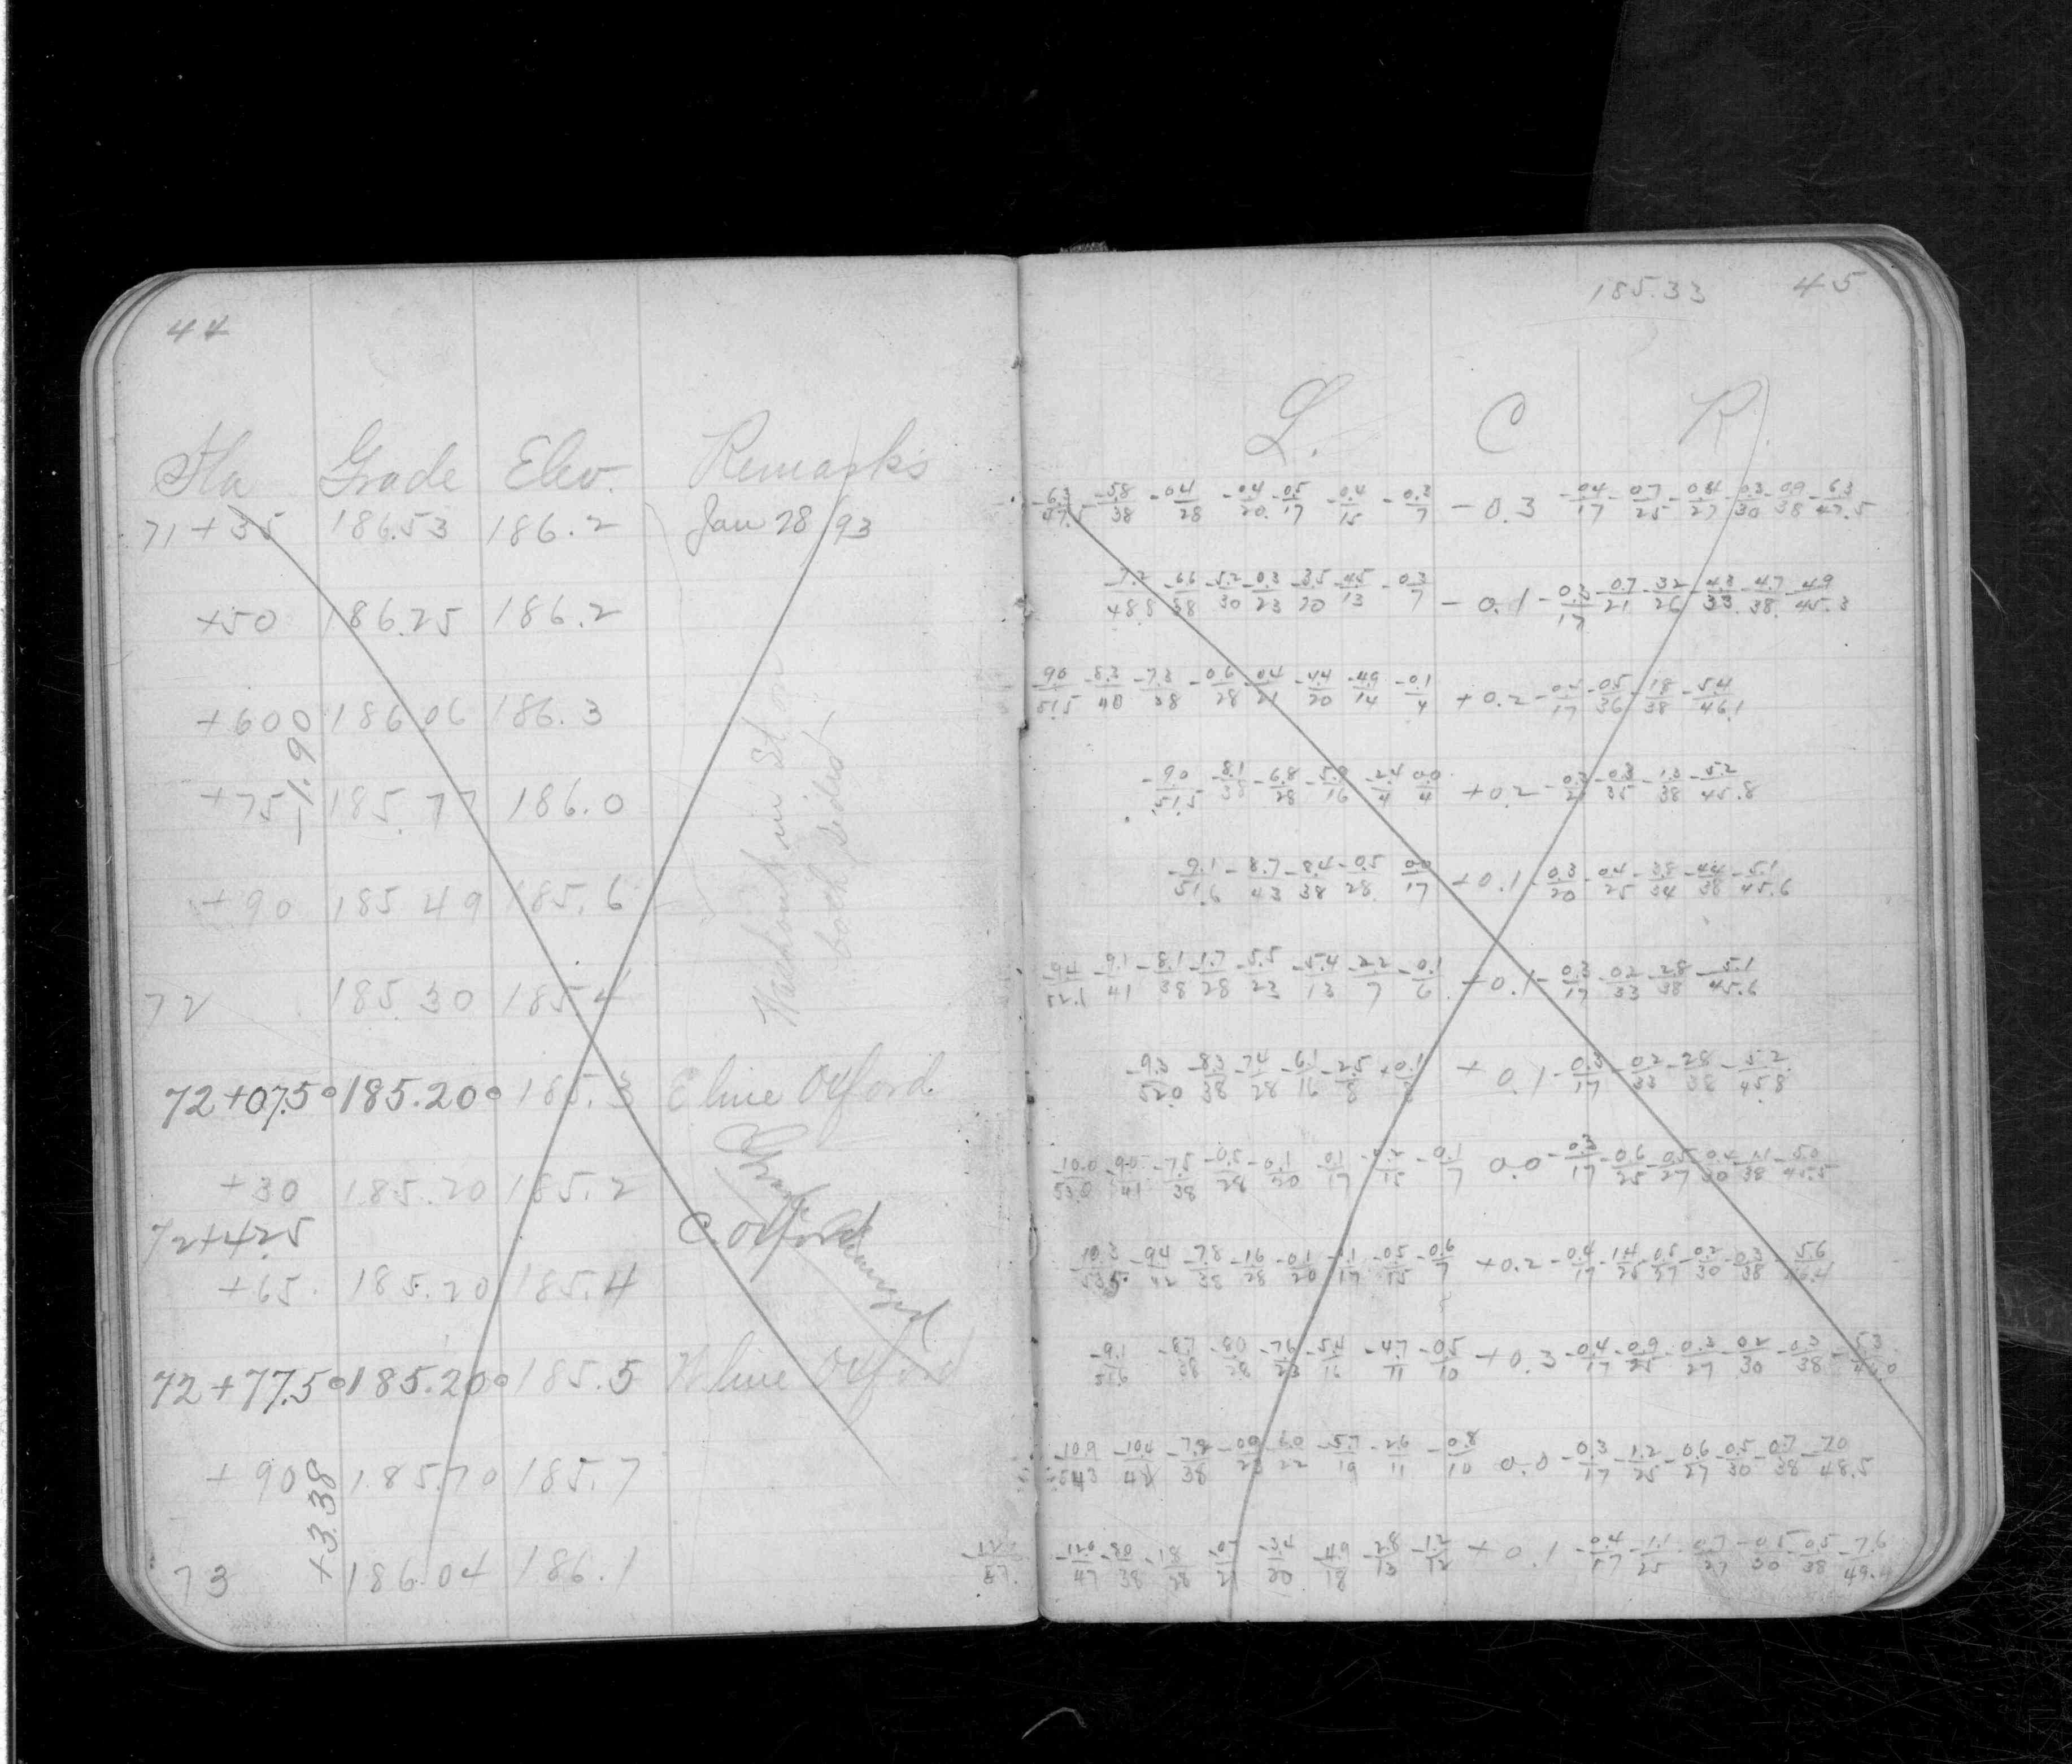 44
Sta Grade Elev. Remarks
71+35 186.53 186.2 Jan 28/93
+50 186.25 186.2
+60 186.06 186.3
-1.90
+75 185.77 186.0
+90 185.49 185.6
both sides
72 185.30 185.4
72+07.5 185.20 185.3 E line Oxford
+30 185.20 185.2
72+42.5 C. Oxford
+65 185.20 185.4
72+77.5 185.20 185.5 W line Oxford
+90 185.70 185.7
+3.38
73 186.04 186.1
185.33 45
L. C R.
-5.8/38 -0.4/28 -0.4/20 -0.5/17 -0.4/15 -0.3/7 -0.3 -0.4/17 -0.7/25 -0.3/30 -0.9/38 -6.3/47.5
-6.6/38 -5.2/30 -0.3/23 -3.5/20 -4.5/13 -0.3/7 -0.1 -0.3/17 -0.7/21 -3.2/26 -4.3/33 -4.7/38 -4.9/45.3
-9.0/51.5 -8.3/40 -7.3/38 -0.6/28 -0.4/21 -4.4/20 -4.9/14 -0.1/4 +0.2 -0.5/36 -1.8/38 -5.4/46.1
-9.0/51.5 -8.1/38 -6.8/28 -5.9/16 -2.4/4 0.0/4 +0.2 -0.3/21 -0.3/35 -1.3/38 -5.2/45.8
-9.1/51.6 -8.7/43 -8.4/38 -0.5/28 0.0/17 +0.1 -0.3/20 -0.4/25 -3.8/34 -4.4/38 -5.1/45.6
-9.4/52.1 -9.1/41 -8.1/38 -1.7/28 -5.5/23 -5.4/13 -2.2/7 -0.1/6 +0.1 -0.3/17 -0.2/33 -2.8/38 -5.1/45.6
-9.3/52.0 -8.3/38 -7.4/28 -6.1/16 -2.5/8 +0.1/8 +0.1 -0.3/17 -0.2/33 -2.8/38 -5.2/45.8
-10.0/53.0 -9.0/41 -7.5/38 -0.5/28 -0.1/20 -0.1/17 -2.2/15 -0.1/7 0.0 -0.3/17 -0.6/25 -0.5/27 -0.4/30 -1.1/38 -5.0/45.5
-10.3/53.5 -9.4/42 -7.8/38 -1.6/28 -0.1/20 -1.1/17 -0.5/15 -0.6/7 +0.2 -0.4/17 -1.4/25 -0.5/27 -0.2/30 -0.3/38 -5.6/46.4
-9.1/51.6 -8.7/38 -8.0/28 -7.6/23 -5.4/16 -4.7/11 -0.5/10 +0.3 -0.4/17 -0.9/25 -0.3/27 -0.2/30 -0.3/38 -5.3/46.0
-10.9/54.3 -10.4/48 -7.8/38 -6.0/22 -5.7/19 -2.6/11 -0.8/10 0.0 -0.3/17 -1.2/25 -0.6/27 -0.5/30 -0.7/38 -7.0/48.5
-12.0/47 -8.0/38 -1.8/28 -0.7/21 -3.4/20 -4.9/18 -2.8/13 -1.2/12 +0.1 -0.4/17 -1.1/25 -0.7/27 -0.5/30 -0.5/38 -7.6/49.4